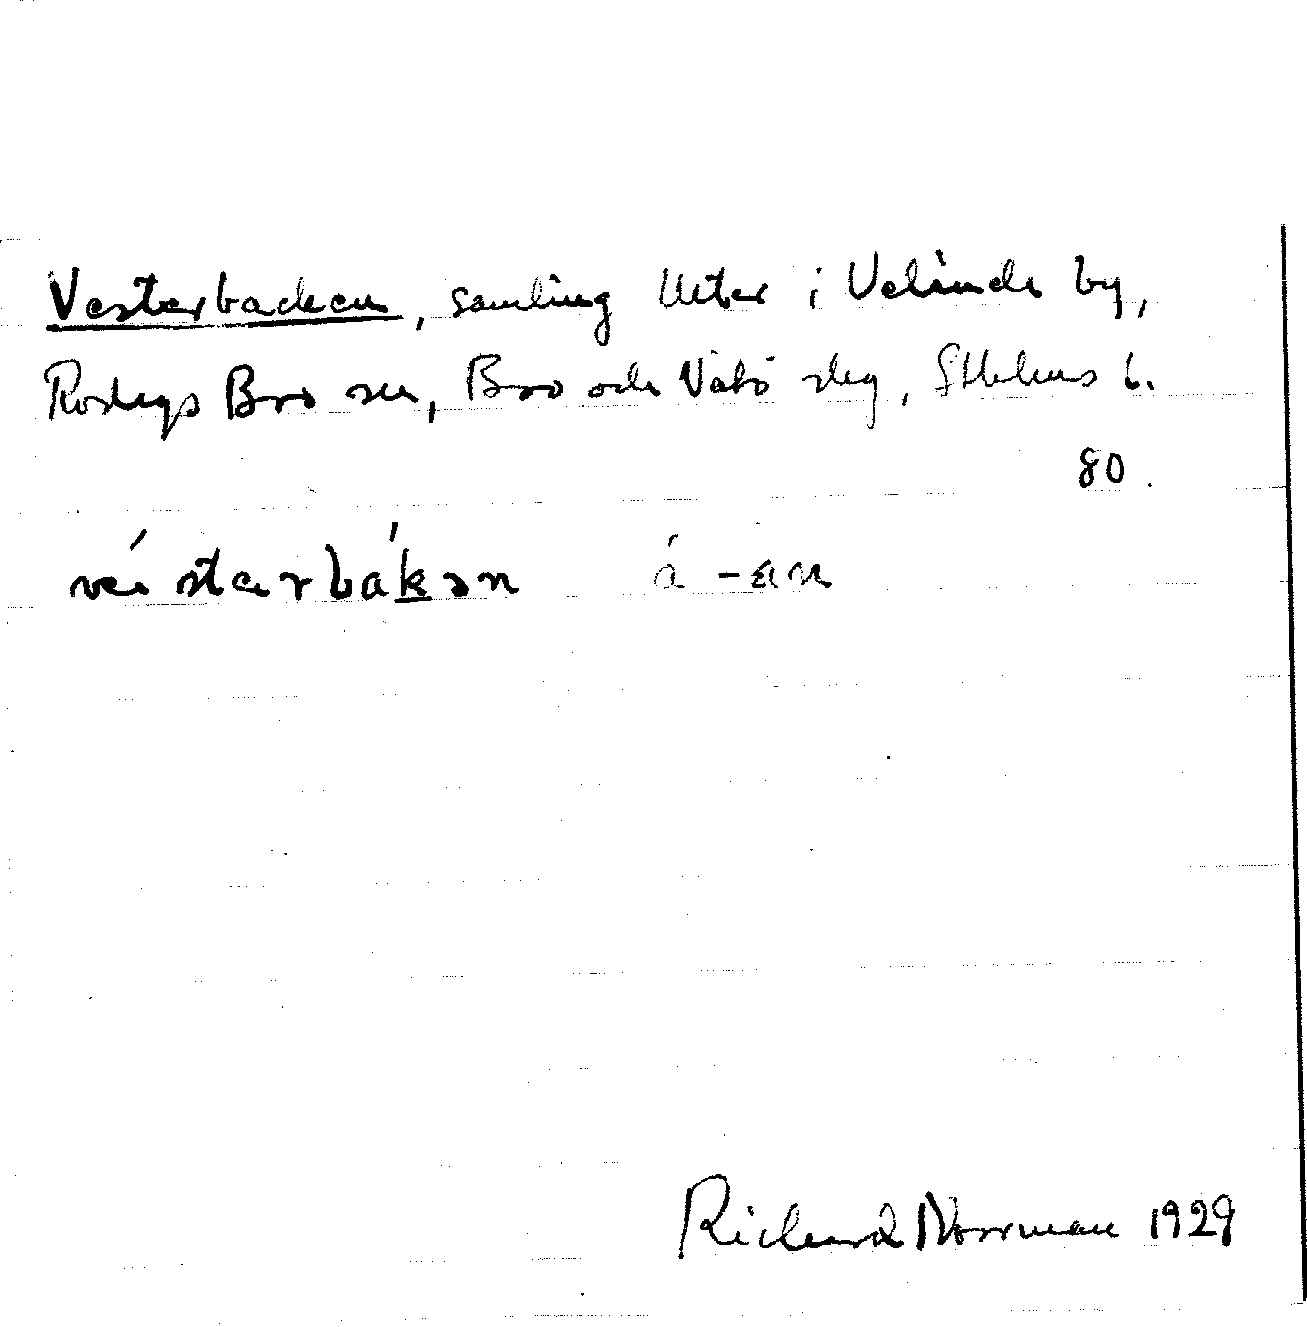 Vesterbacken, samling tomter i Velinde by,
Roslags Bro sn, Bro och Vätö skg, Sthlms l.
80.
vèstərbákən á -an
Richard Norrman 1929